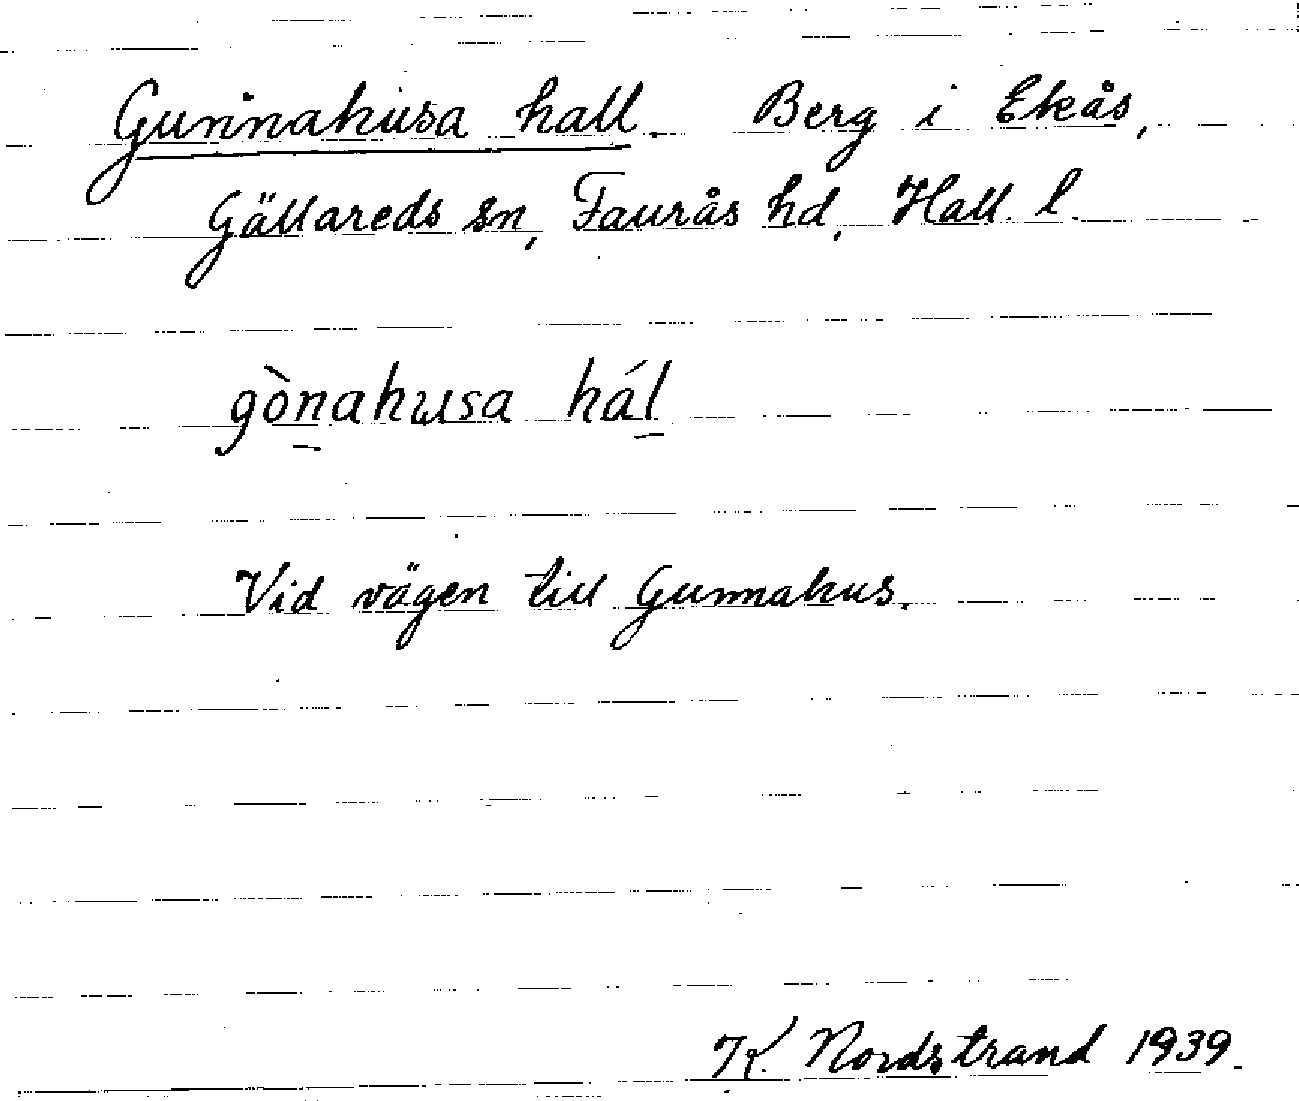 Gunnahusa hall. Berg i Ekås,
Gällareds sn, Faurås hd, Hall. l.
gònahusa hál
Vid vägen till Gunnahus.
K. Nordstrand 1939.